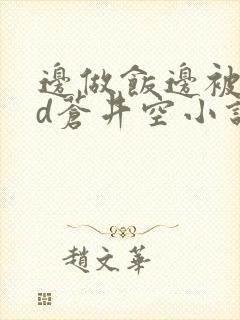 邊做飯邊被
d蒼井空小說
趙文華